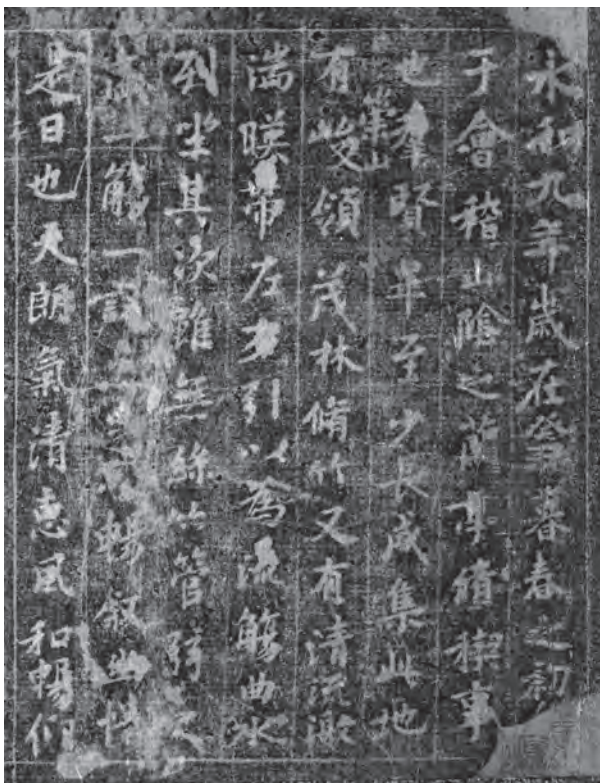 永和九年歲在癸丑暮春之初
于會稽山陰之蘭亭脩禊事
也羣賢畢至少長咸集此地
有崇山峻領茂林脩竹又有清流激
湍暎帶左右引以為流觴曲水
列坐其次雖無絲竹管弦之
盛一觴一詠暢叙幽情
是日也天朗氣清惠風和暢仰